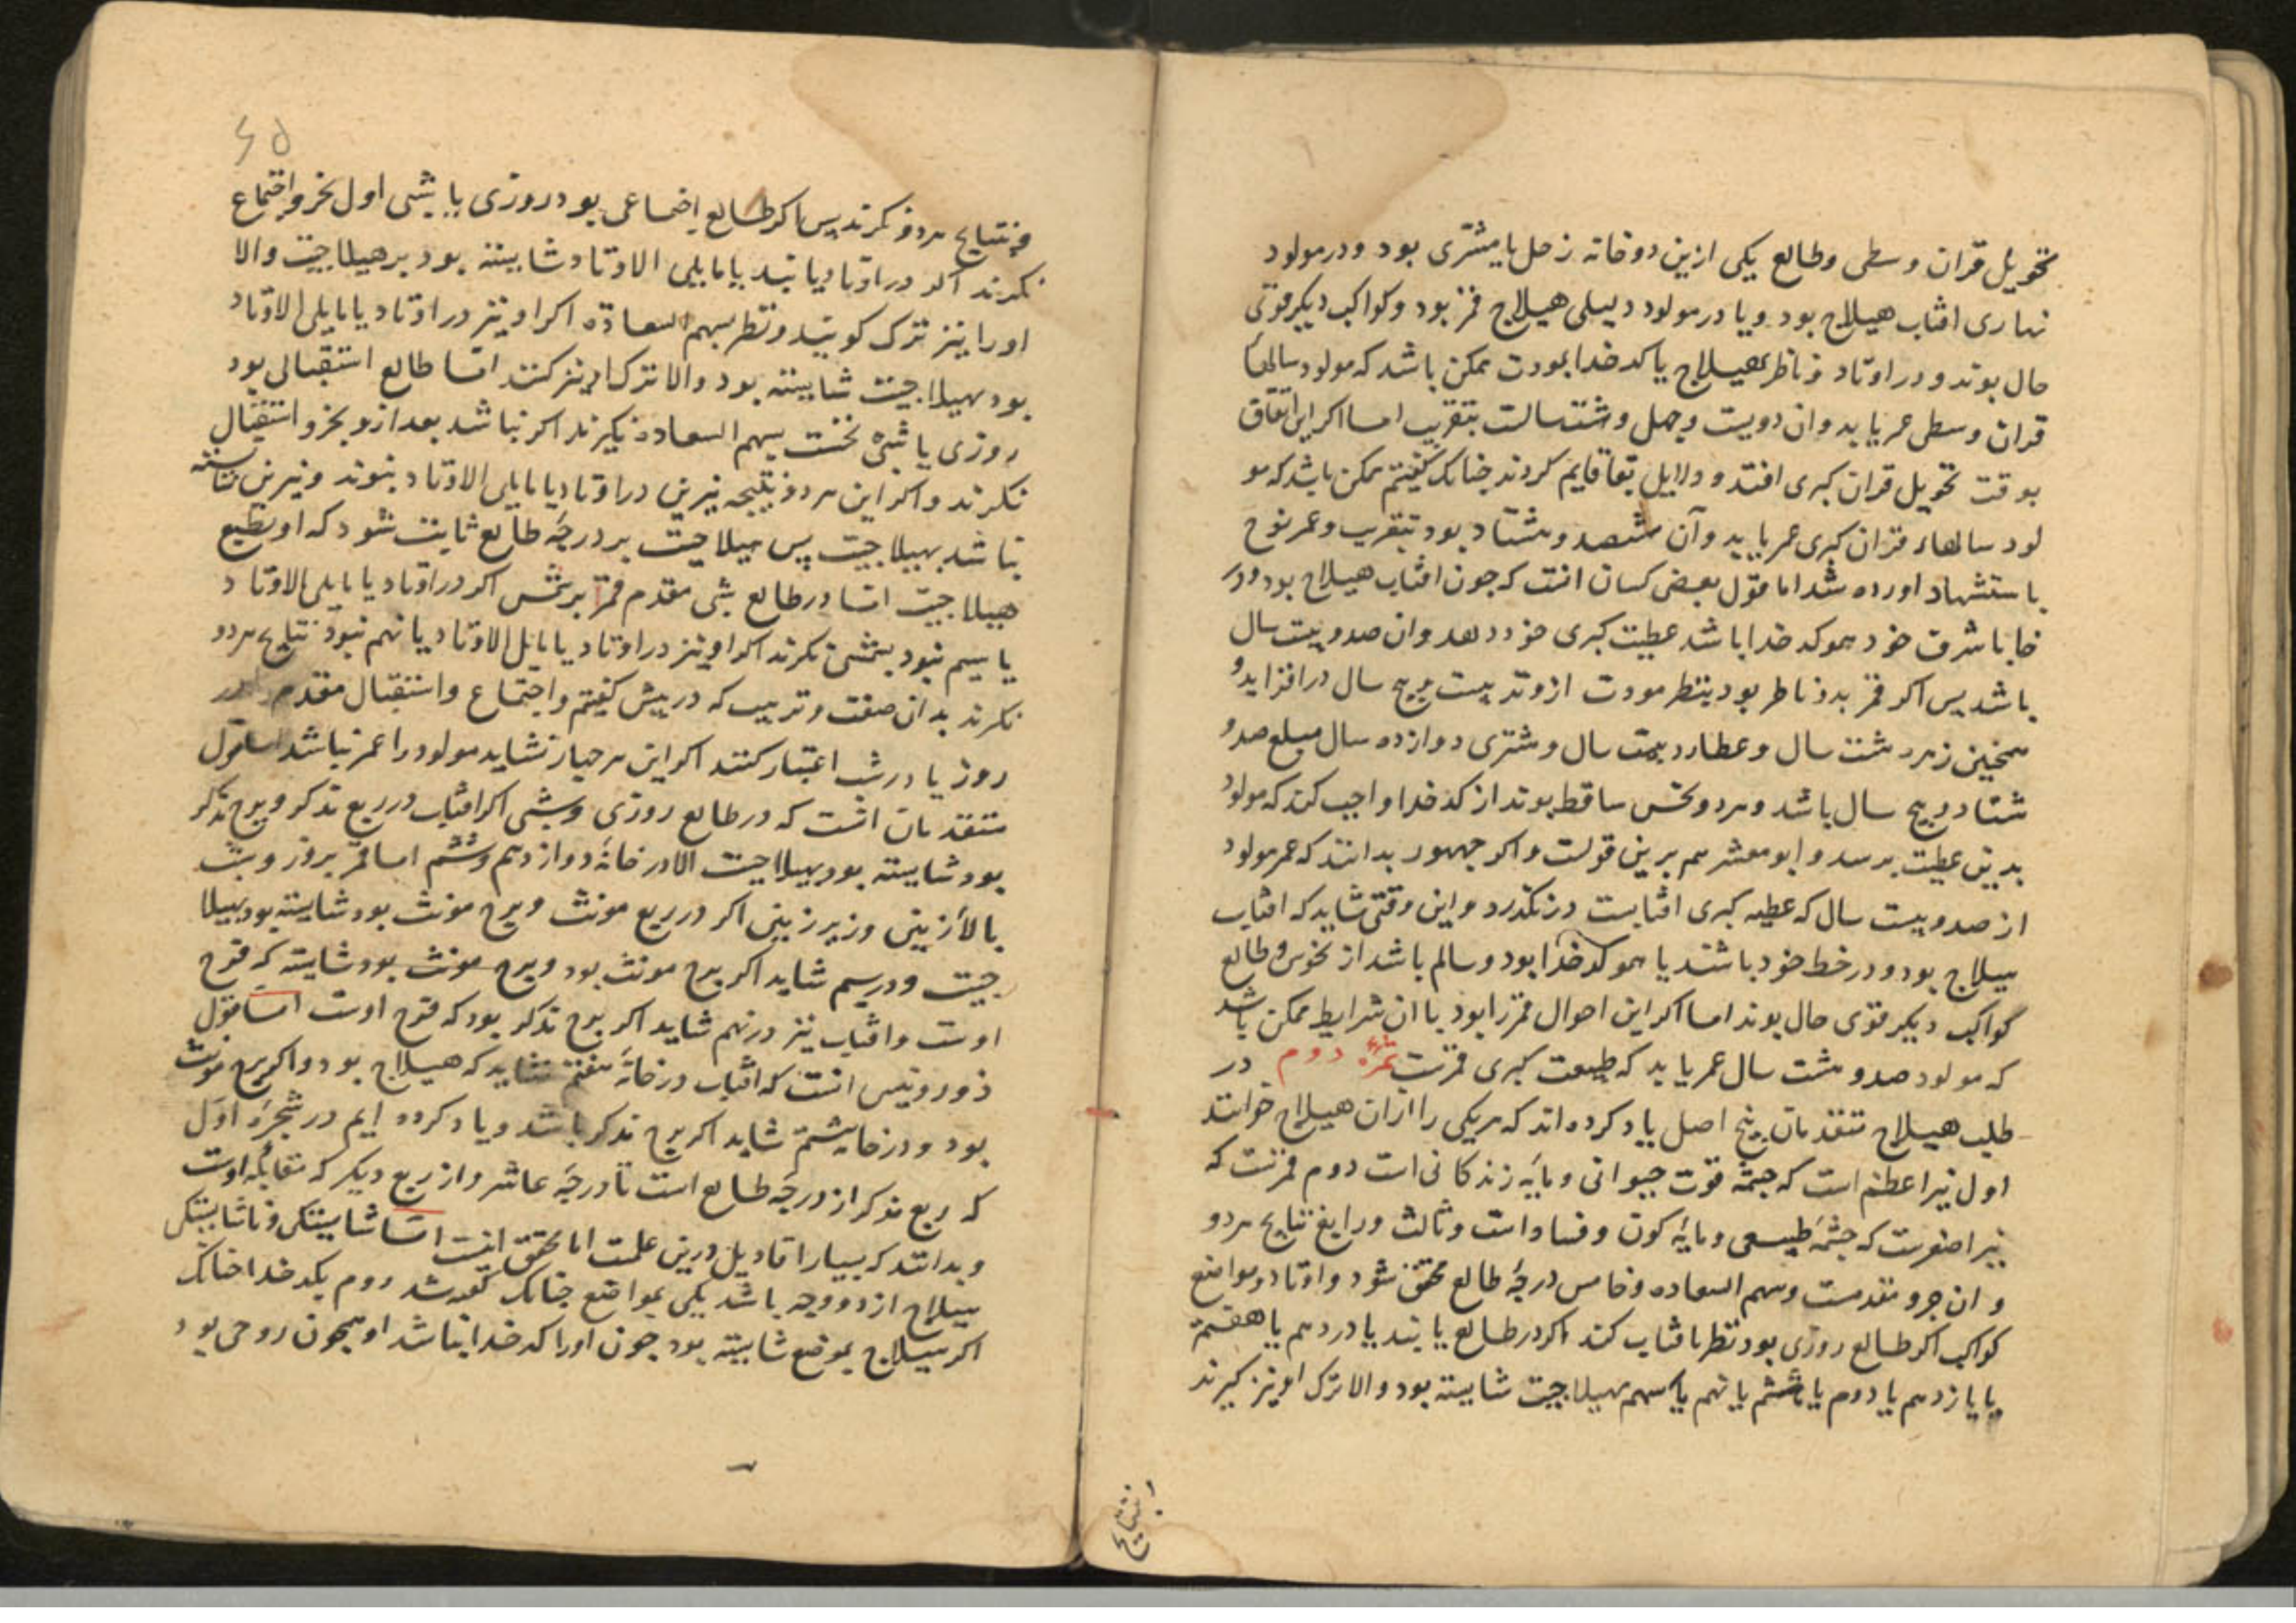 تحویل قران وسطی وطالع یکی ازین دوخانه زحل یا مشتری بود ودرمولود
نهاری افتاب هیلاج بود ویا درمولود لیلی هیلاج قمر بود وکواکب دیکر قوی
حال بوند ودر اوتاد وناظر بهیلاج یا کدخدا بمودت ممکن باشد که مولود سالها
قران وسطی عمر یابد وان دویست وچهل وهشتسالست بتقریب اما اکر این اتفاق
بوقت تحویل قران کبری افتد ودلایل بقا قایم کردند چنانک کفیتم ممکن باشد که مو
لود سالهاء قران کبری عمر یابد وآن نهصد وهشتاد بود بتقریب وعمر نوح
باستشهاد اورده شد اما قول بعضی کسان انست که چون افتاب هیلاج بود ودر
خا یا شرف خود همو کدخدا باشد عطیت کبری خود دهد وان صدوبیست سال
باشد پس اکر قمر بدو ناظر بود بنظر مودت از وتد بیست وپنج سال درافزاید و
همچنین زهره هشت سال وعطارد بیست سال ومشتری دوازده سال مبلغ صدو
هشتاد وپنج سال باشد وهردونحس ساقط بوند از کدخدا واجب کند که مولود
بدین عطیت برسد وابومعشر هم برین قولست واکر جمهور بدانند که عمر مولود
از صدوبیست سال که عطیه کبری افتابست درنکذرد واین وقتی شاید که افتاب
هیلاج بود ودر خط خود باشد یا همو کدخدا بود وسالم باشد از نحوس وطالع
کواکب دیکر قوی حال بوند اما اکر این احوال قمر را بود با ان شرایط ممکن باشد
که مولود صدوهشت سال عمر یابد که طبیعت کبری قمرست ثمره دوم در
طلب هیلاج متقدمان پنج اصل یاد کرده اند که هریکی را ازان هیلاج خوانند
اول نیر اعظم است که چشمه قوت حیوانی ومایه زندکانی است دوم قمرست که
نیر اصغرست که چشمه طبیعی ومایه کون وفساد است وثالث ورابع نتایج هردو
وان جزو مقدمست وسهم السعاده وخامس درجه طالع محقق شود واوتاد ومواضع
کواکب اکر طالع روزی بود نظر بافتاب کند اکر درطالع یابند یا دردهم یا هفتم
یا یازدهم یا دوم یا هشتم یا نهم یا سهم بهیلاجیت شایسته بود والا ترک او نیز کیرند
بنتایج
۶۵
وبنتایج هردو نکرند پس اکر طالع اجتماعی بود روزی یا شبی اول بجزو اجتماع
نکرند اکر در اوتاد یابند یا مایلی الاوتاد شایسته بود برهیلاجیت والا
اورا نیز ترک کویند ونظر بسهم السعاده اکر او نیز در اوتاد یا مایلی الاوتاد
بود بهیلاجیت شایسته بود والا ترک او نیز کنند اما طالع استقبالی بود
روزی یا شبی نخست بسهم السعاده نکرند اکر نباشد بعد ازو بجزو استقبال
نکرند واکر این هردو نتیجه نیرین در اوتاد یا مایلی الاوتاد نبوند ونیرین شایسته
نباشد بهیلاجیت پس هیلاجیت بر درجه طالع ثابت شود که او بطبع
هیلاجیت اما درطالع شبی مقدم قمر برشمس اکر در اوتاد یا مایلی الاوتاد
یا سیم نبود بشمس نکرند اکر او نیز در اوتاد یا مایل الاوتاد یا نهم نبود نتایج هردو
نکرند بدان صفت وترتیب که درپیش کفیتم واجتماع واستقبال مقدم
روز یا درشب اعتبار کنند اکر این هرچهار نشاید مولود را عمر نباشد اما قول
متقدمان انست که درطالع روزی وشبی اکر افتاب درربع مذکر وبرج مذکر
بود شایسته بود بهیلاجیت الا درخانه دوازدهم وششم اما قمر بروز وشب
بالا زمین وزیر زمین اکر درربع مونث وبرج مونث بود شایسته بود بهیلا
جیت ودرسیم شاید اکر برج مونث بود وبرج مونث بود شایسته که فرح
اوست وافتاب نیز درنهم شاید اکر برج مذکر بود که فرح اوست اما قول
ذوروتیس انست که افتاب درخانه هفتم نشاید که هیلاج بود واکر برج مونث
بود ودرخانه هشتم شاید اکر برج مذکر باشد ویاد کرده ایم درشجره اول
که ربع مذکر از درجه طالع است تا درجه عاشر واز ربع دیکر که مقابله اوست
وبدانند که بسیار اقاویل درین علمست اما محقق اینست اما شایستکی وناشایستکی
هیلاج از دو وجه باشد یکی بمواضع چنانک کفته شد دوم بکدخدا چنانک
اکر هیلاج بموضع شایسته بود چون اورا کدخدا نباشد او همچون روحی بود